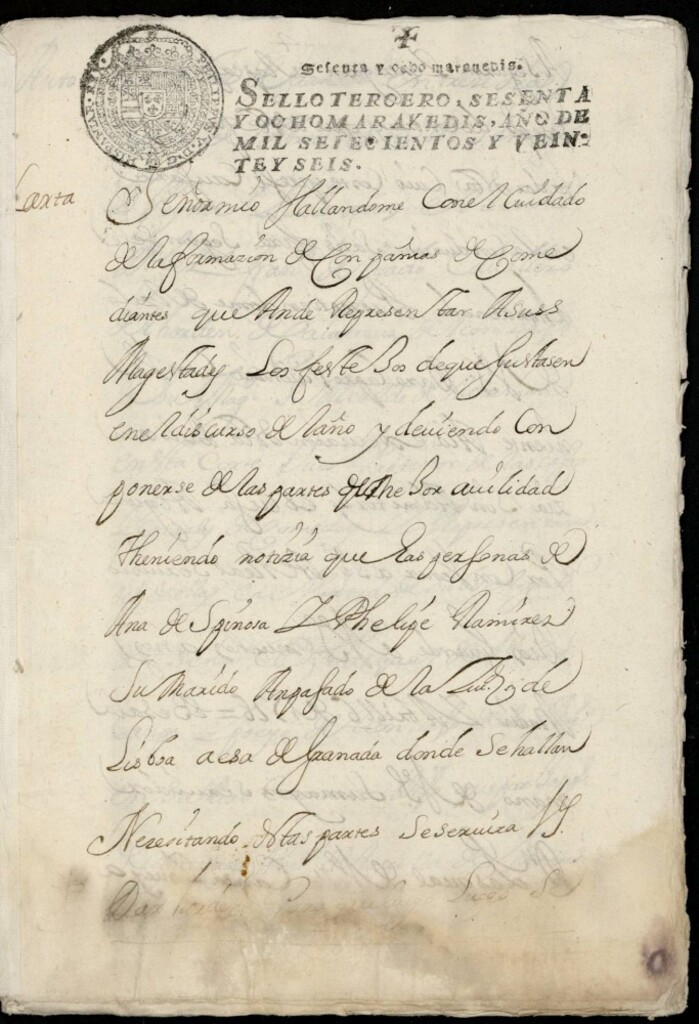 Sesenta y ocho maravedis.
SELLO TERCERO, SESENTA
Y OCHO MARAVEDIS, AÑO DE
MIL SETECIENTOS Y VEIN-
TE Y SEIS.
PHILIPPUS V D G HISPANIAR REX
Carta
Señor mio Hallandome Con el Cuidado
de la formazion de Conpañias de Come
diantes que Ande Representar A suss
Magestades Los festexos de que Gustasen
en el discurso del año y deviendo Con
ponerse de las partes de Mexor avilidad
theniendo notizia que las personas de
Ana de Spinosa Y Phelipe Ramirez
Su Marido An pasado de la Ziud de
Lisboa a esa de Granada donde Se hallan
Nezesitando destas partes Se servira
Dar Luego